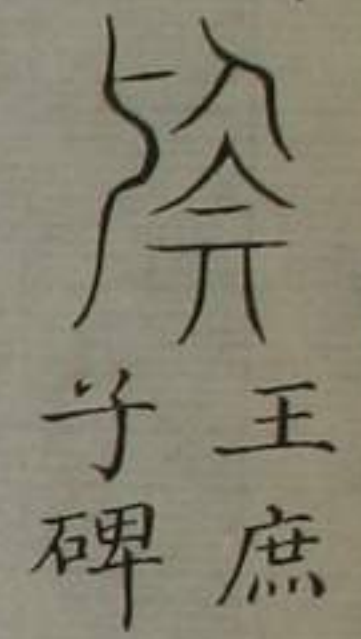 王庶
子碑